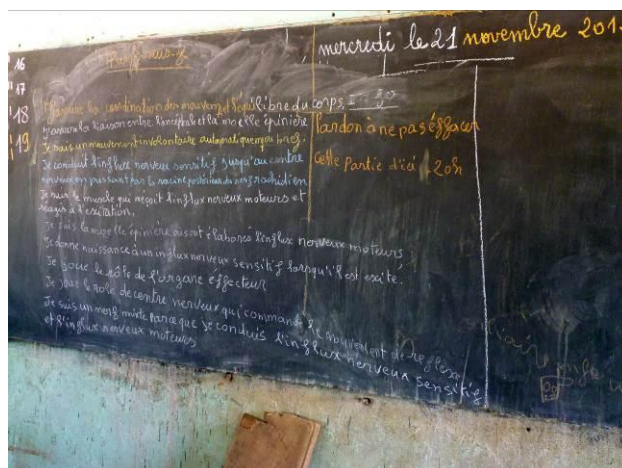 mercredi le 21 novembre 201
16
17
18
19
J'assure la coordination des mouvements et l'équilibre du corps.
J'assure la liaison entre l'encéphale et la moelle épinière
Je suis un mouvement involontaire automatique
Je conduit l'influx nerveux sensitif jusqu'au centre
nerveux en passant par la racine postérieure du nerf rachidien
Je suis le muscle qui reçoit l'influx nerveux moteurs et
réagis à l'excitation.
Je suis la moelle épinière où sont élaborés l'influx nerveux moteurs
Je donne naissance à un influx nerveux sensitif lorsqu'il est excité.
Je joue le rôle de l'organe effecteur
Je joue le role de centre nerveux qui commande le mouvement de reflexe
Je suis un nerf mixte parce que je conduis l'influx nerveux sensitif
et l'influx nerveux moteurs
Pardon à ne pas éffacer
cette partie d'ici 20h